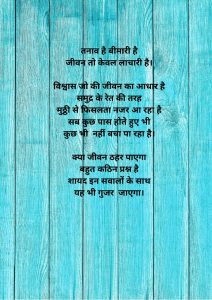 तनाव है बीमारी है
जीवन तो केवल लाचारी है।
विश्वास जो की जीवन का आधार है
समुद्र के रेत की तरह
मुठ्ठी से फिसलता नजर आ रहा है
सब कुछ पास होते हुए भी
कुछ भी नहीं बचा पा रहा है।
क्या जीवन ठहर पाएगा
बहुत कठिन प्रश्न है
शायद इन सवालों के साथ
यह भी गुजर जाएगा।